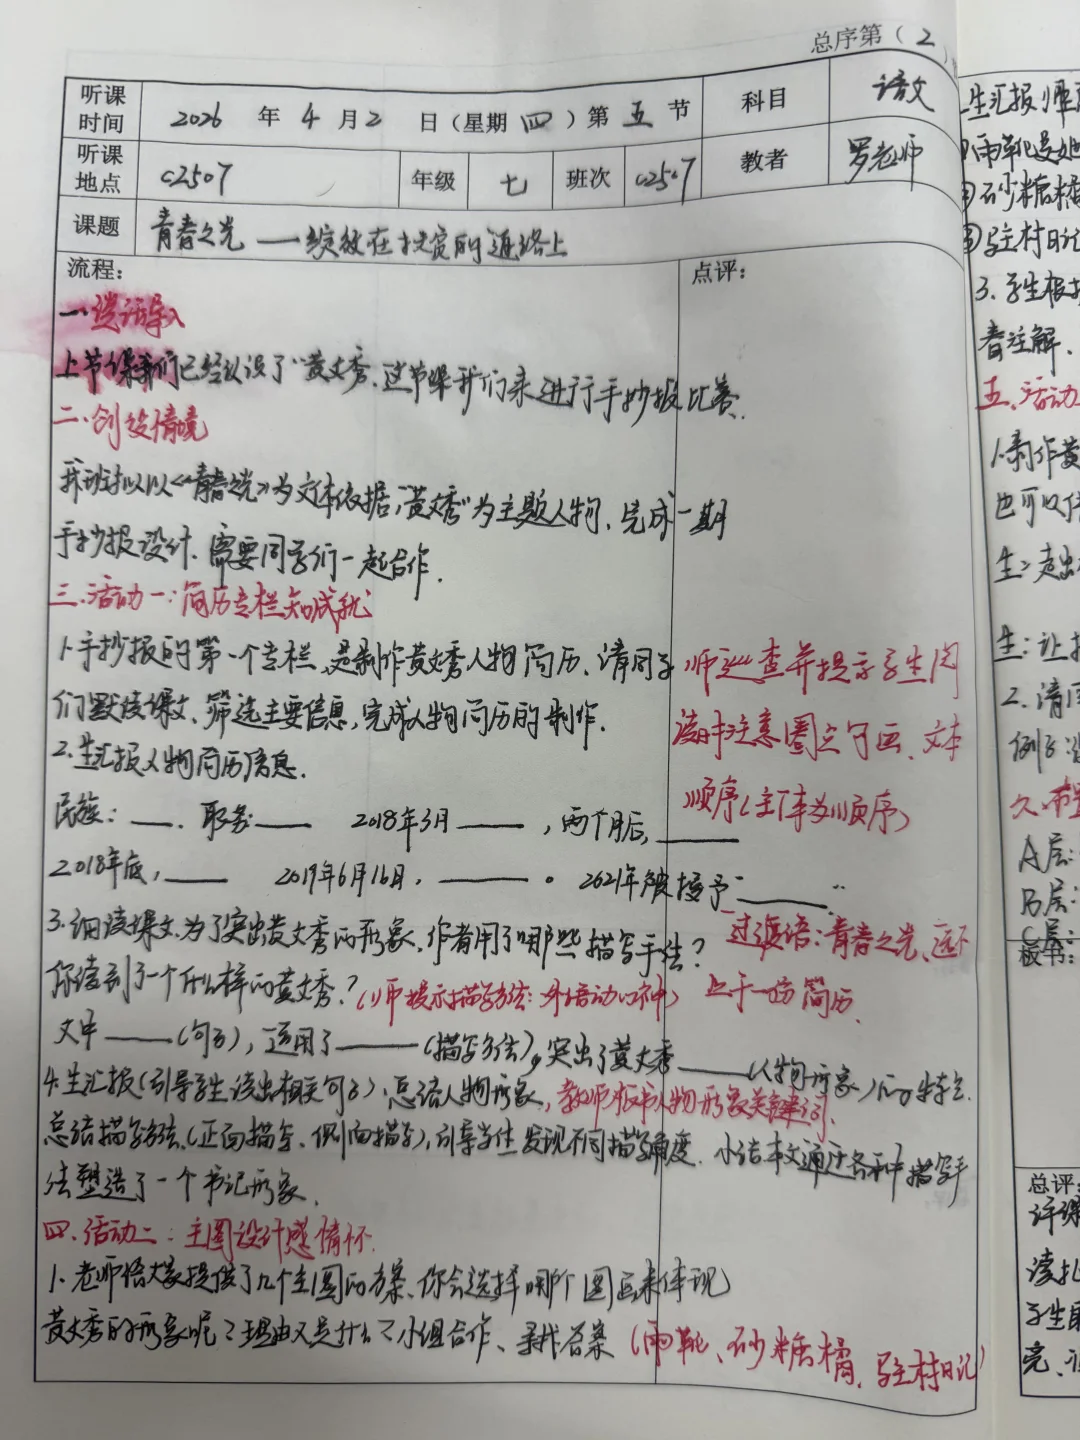 总序第（2
听课时间 2026 年 4 月 2 日（星期 四 ）第 五 节 科目 语文
听课地点 C2507 年级 七 班次 C2507 教者 罗老师
课题 青春之光——绽放在扶贫的道路上
流程： 点评：
一.谈话导入
上节课我们已经认识了"黄文秀,这节课我们来进行手抄报比赛.
二.创设情境
我班拟以《青春之光》为文本依据,"黄文秀"为主题人物,完成一期
手抄报设计、需要同学们一起合作.
三.活动一:简历专栏知成就
1.手抄报的第一个专栏,是制作黄文秀人物简历、请同学
们默读课文、筛选主要信息,完成人物简历的制作.
师巡查并提示学生阅
读时注意圈点勾画、文本
顺序(主体为顺序)
2.生汇报人物简历信息.
民族：__. 职务__ 2018年3月__,两个月后,__
2018年底,__ 2019年6月16日,__。2021年被授予"__".
3.细读课文.为了突出黄文秀的形象、作者用了哪些描写手法?
你读到了一个什么样的黄文秀?(师提示描写方法:外语动心神)
过渡语:青春之光、远不
止于一份简历.
文中__(句子),运用了__(描写方法),突出了黄文秀__(人物形象)的特点.
4.生汇报(引导学生读出相关句子)、总结人物形象,教师板书人物形象关键词.
总结描写方法.(正面描写、侧面描写),引导学生发现不同描写角度.小结本文通过各种描写手
法塑造了一个书记形象.
四.活动二:主图设计感情怀.
1.老师给大家提供了几个主图的方案、你会选择哪个图画来体现
黄文秀的形象呢?理由又是什么?小组合作、寻找答案(雨靴、砂糖橘、驻村日记)
生汇报师
雨靴是她
砂糖橘
驻村日记
3.学生根
春注解.
五.活动
1.制作黄
也可以
生:走出
生:让
2.请同
例子:
六.布
A层:
B层:
C层:
板书：
总评：
评课
读
学生
完、